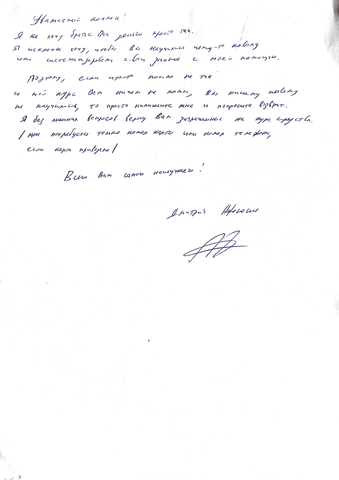 Уважаемый коллега!
Я не хочу брать Ваши деньги просто так.
Я искренне хочу, чтобы Вы научились чему-то новому
или систематизировали свои знания с моей помощью.
Поэтому, если что-то пошло не так
и мой курс Вам ничем не помог, Вы ничему новому
не научились, то просто напишите мне и попросите возврат.
Я без лишних вопросов верну Вам затраченные на курс средства.
/мне потребуется только номер карты или номер телефона,
если карта привязана/
Всего Вам самого наилучшего!
Дмитрий